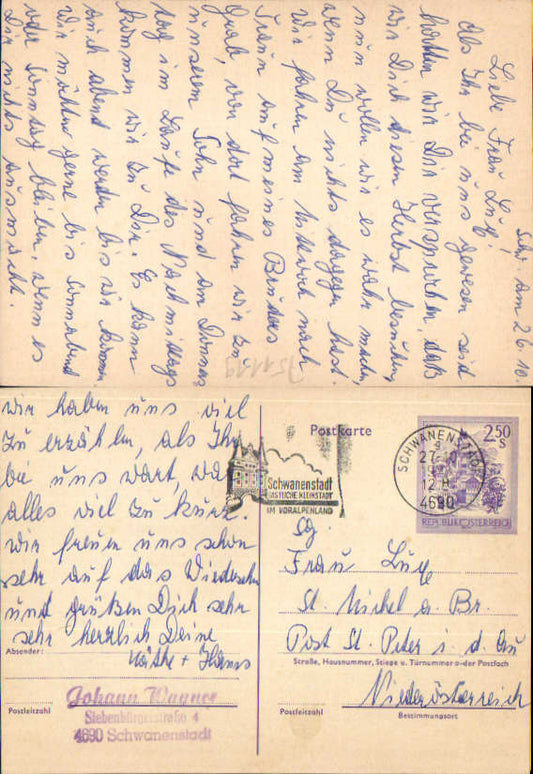 Schw. am 26.10.
Liebe Frau Lug!
Als Ihr bei uns gewesen seid
hatten wir Dir versprochen, daß
wir Dich diesen Herbst besuchen
nun wollen wir es wahr machen
wenn Du nichts dagegen hast.
Wir fahren am Mittwoch nach
Traun auf meines Bruders
Grab, von dort fahren wir zu
unserem Sohn und am Donners
tag im Laufe des Nachmittags
kommen wir zu Dir. Es kann
auch abend werden bis wir kommen
wir möchten gerne bis Sonnabend
oder Sonntag bleiben, wenn es
Dir nichts ausmacht.
wir haben uns viel
zu erzählen, als Ihr
bei uns wart, war
alles viel zu kurz.
Wir freuen uns schon
sehr auf das Wiedersehn
und grüßen Dich sehr
sehr herzlich Deine
Käthe + Hans
Absender:
Johann Wagner
Siebenbürgerstraße 4
4690 Schwanenstadt
Postleitzahl
Postkarte
Schwanenstadt
GASTLICHE KLEINSTADT
IM VORALPENLAND
SCHWANENSTADT
4690
2.50
S
REPUBLIK ÖSTERREICH
Frau Lug
St. Michel a. Br.
Post St. Peter i. d. Au
Straße, Hausnummer, Stiege u. Türnummer oder Postfach
Niederösterreich
Postleitzahl
Bestimmungsort